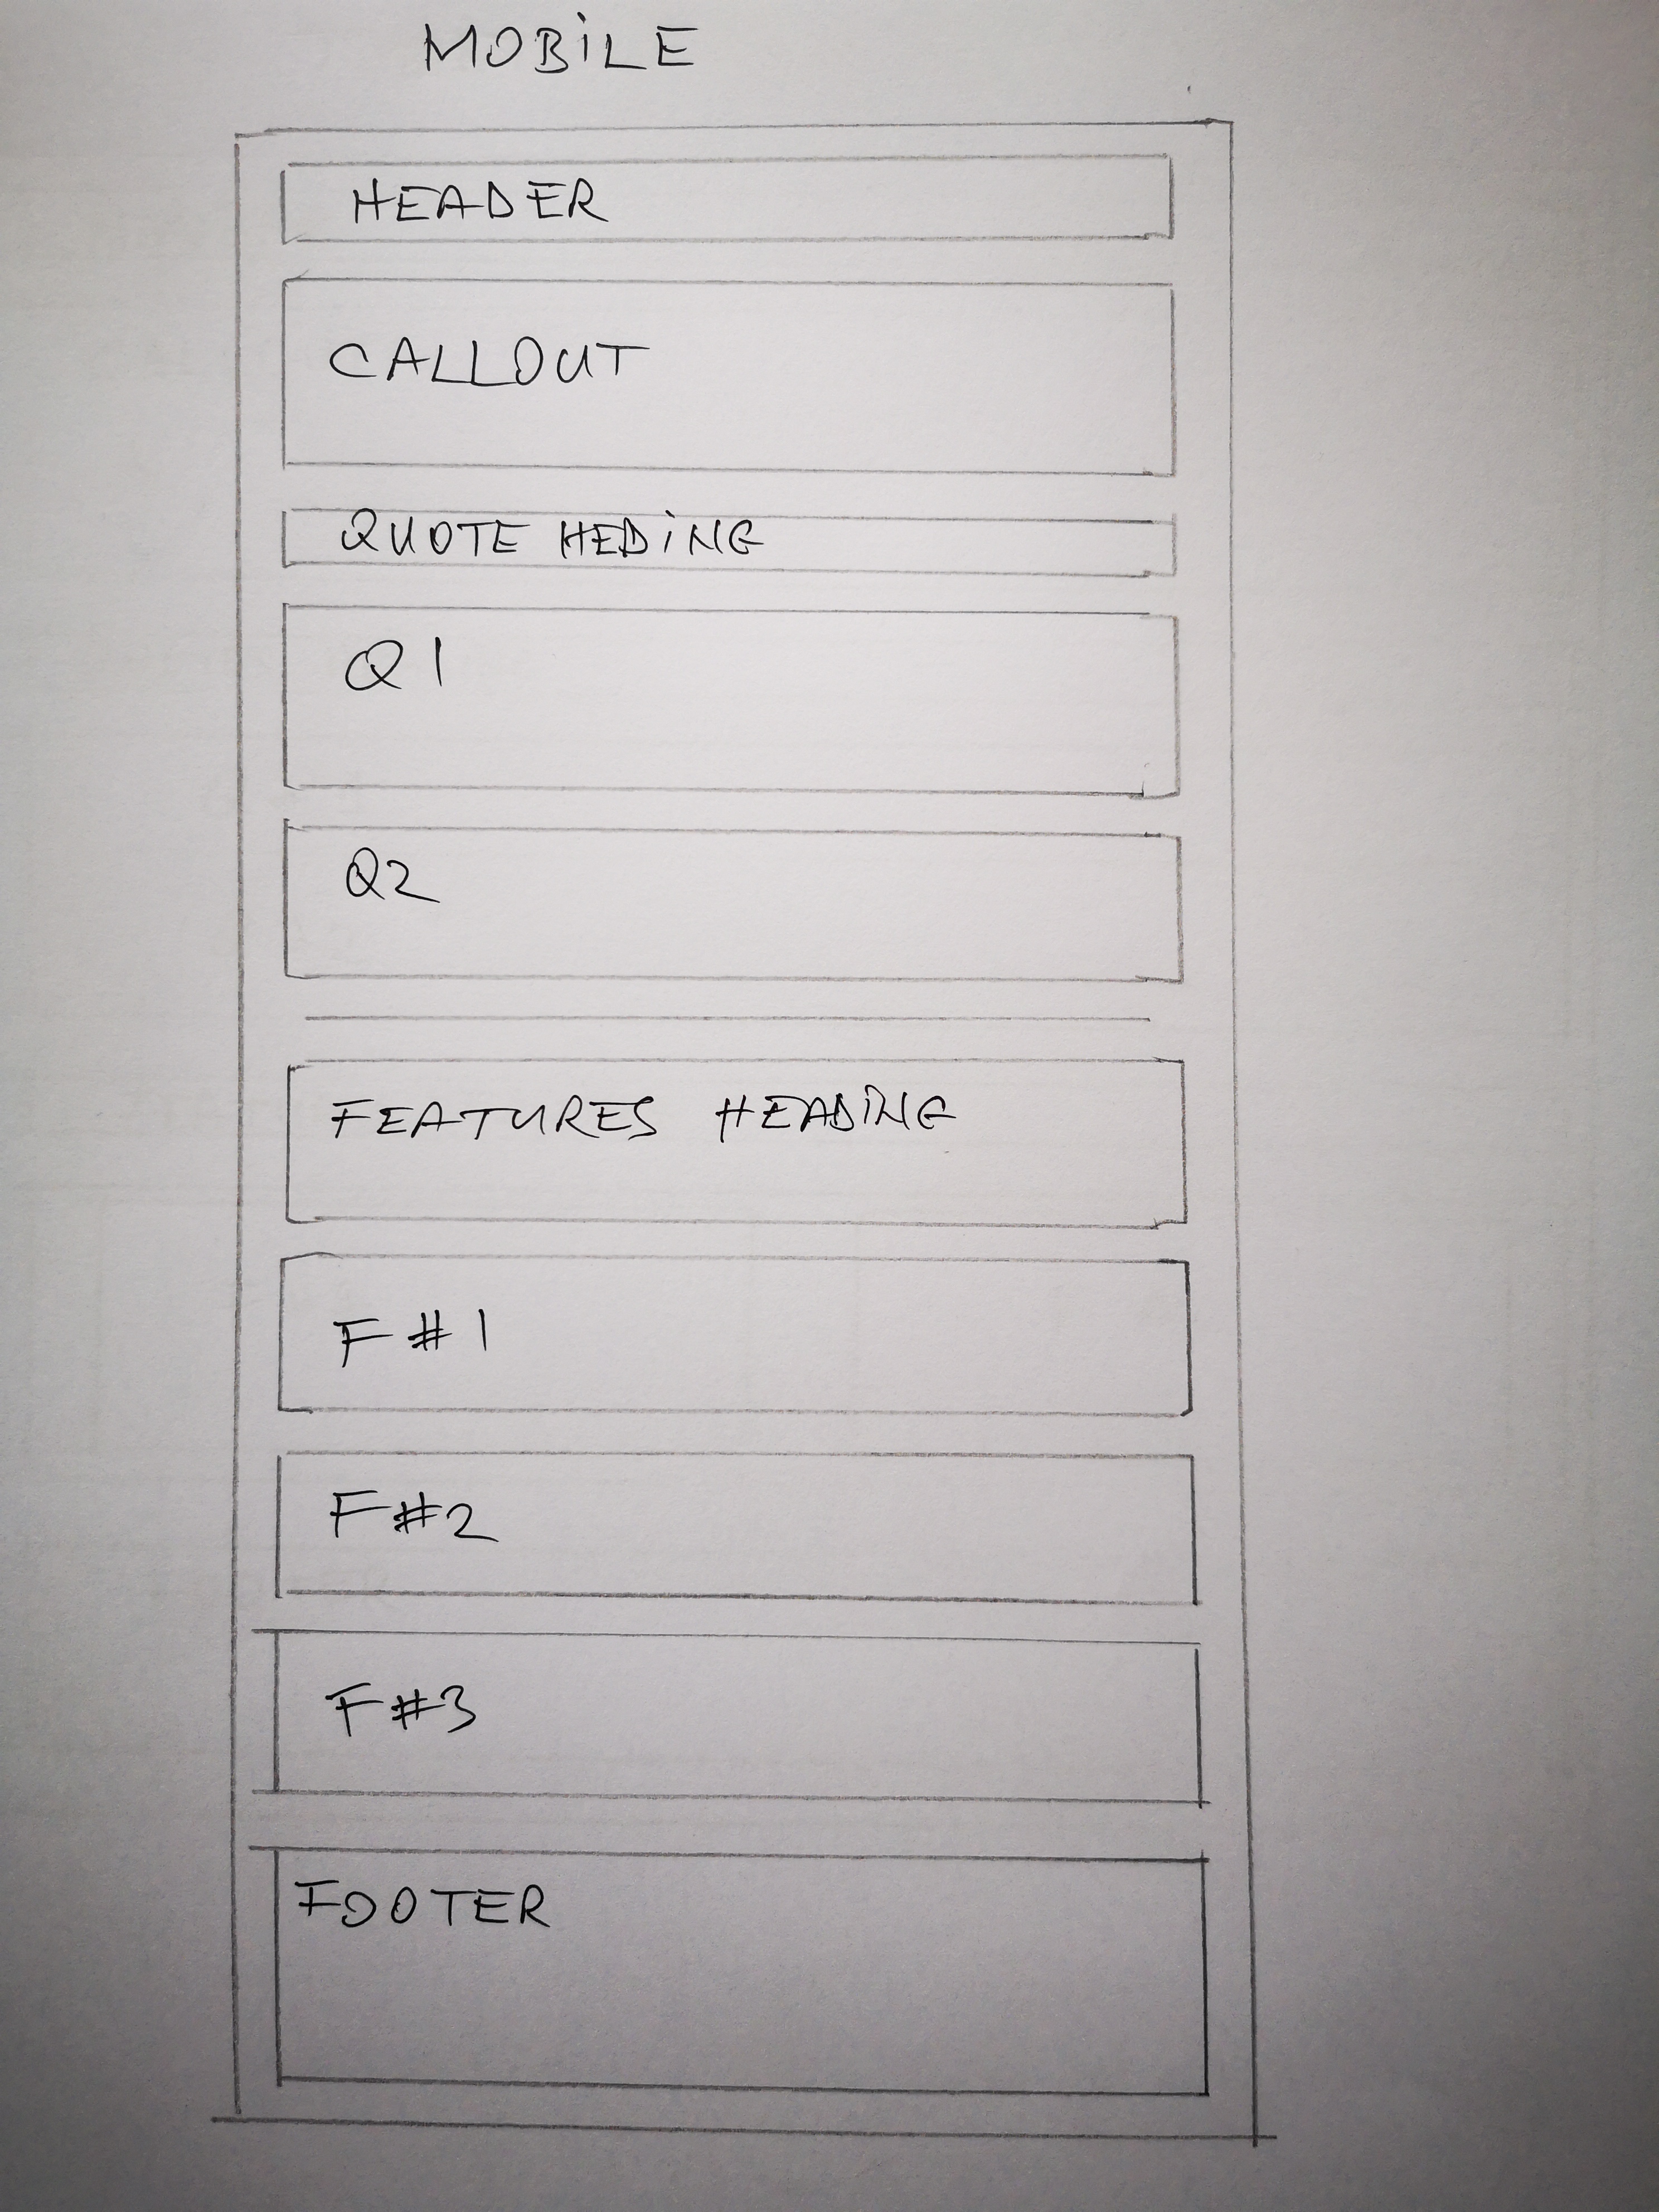 MOBILE
HEADER
CALLOUT
QUOTE HEDING
Q1
Q2
FEATURES HEADING
F#1
F#2
F#3
FOOTER